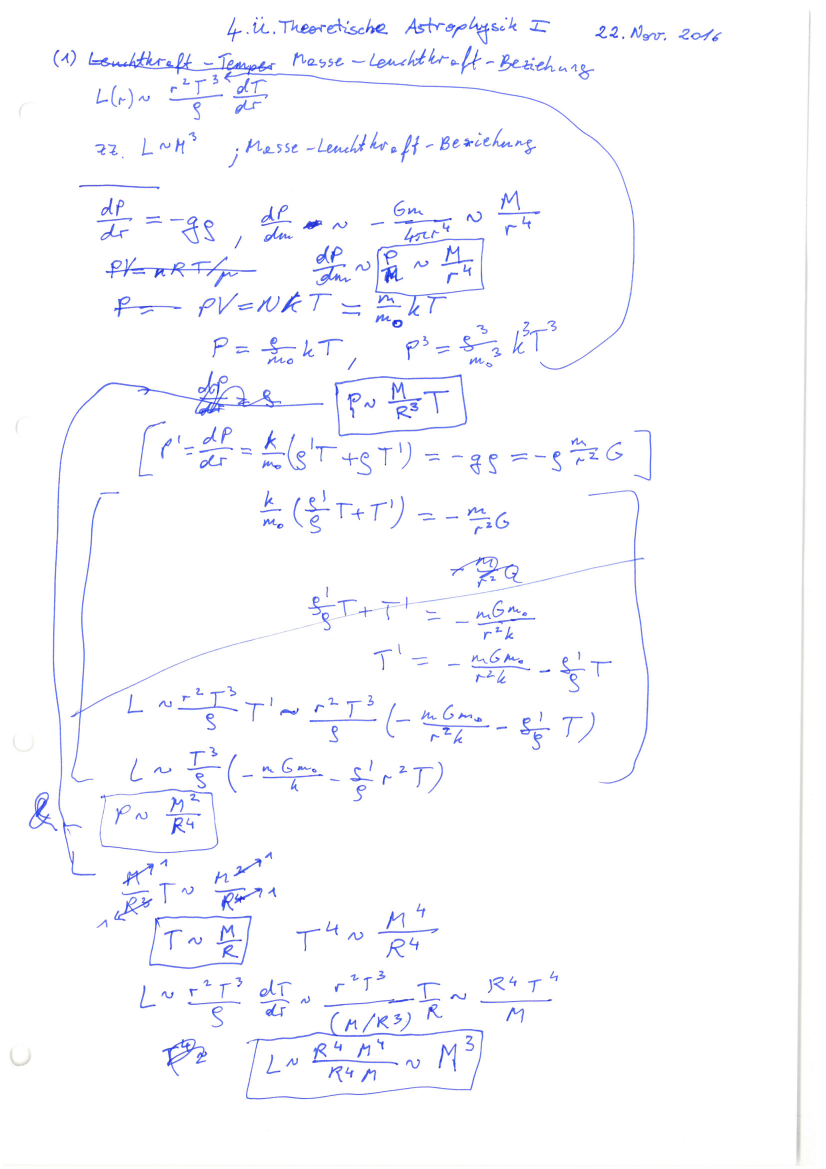 4. Ü. Theoretische Astrophysik I 22. Nov. 2016
(1) Leuchtkraft-Temper Masse-Leuchtkraft-Beziehung
L(r) ~ r²T³/ρ dT/dr
zz. L ~ M³ ; Masse-Leuchtkraft-Beziehung
dP/dr = -gρ , dP/dm ~ - Gm/4πr⁴ ~ M/r⁴
PV = nRT/μ dP/dm ~ P/M ~ M/r⁴
P = PV = NkT = m/m₀ kT
P = ρ/m₀ kT , P³ = ρ³/m₀³ k³T³
dP/dr = ρ P ~ M/R³ T
[ P' = dP/dr = k/m₀ (ρ'T + ρT') = -gρ = -ρ m/r² G ]
k/m₀ (ρ'/ρ T + T') = - m/r² G
- m/r² G
ρ'/ρ T + T' = - mGm₀/r²k
T' = - mGm₀/r²k - ρ'/ρ T
L ~ r²T³/ρ T' ~ r²T³/ρ (- mGm₀/r²k - ρ'/ρ T)
L ~ T³/ρ (- mGm₀/k - ρ'/ρ r²T)
& P ~ M²/R⁴
M/R³ T ~ M²/R⁴
T ~ M/R T⁴ ~ M⁴/R⁴
L ~ r²T³/ρ dT/dr ~ r²T³/(M/R³) T/R ~ R⁴T⁴/M
L ~ R⁴M⁴/R⁴M ~ M³